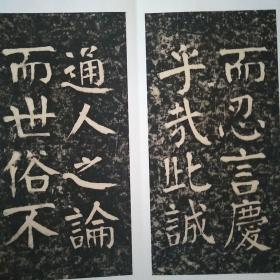 而忍言慶
乎哉此誠
通人之論
而世俗不